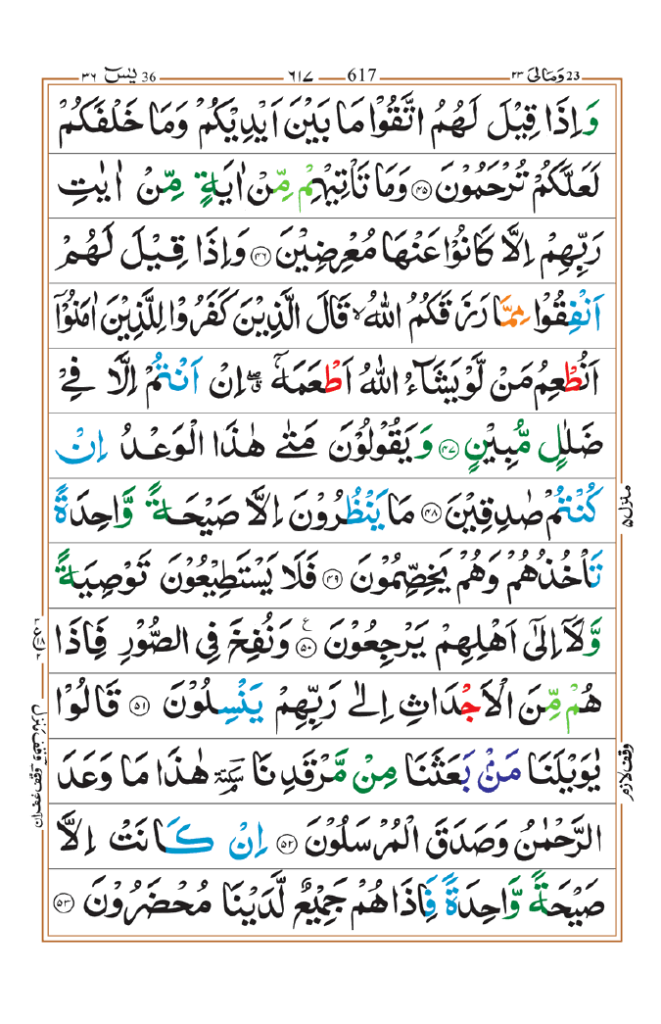 يٰسٓ 36 ٣٦ ٦١٧ 617 وَمَالِىَ 23 ٢٣
وَاِذَا قِيْلَ لَهُمُ اتَّقُوْا مَا بَيْنَ اَيْدِيْكُمْ وَمَا خَلْفَكُمْ
لَعَلَّكُمْ تُرْحَمُوْنَ ﴿۴۵﴾ وَمَا تَاْتِيْهِمْ مِّنْ اٰيَةٍ مِّنْ اٰيٰتِ
رَبِّهِمْ اِلَّا كَانُوْا عَنْهَا مُعْرِضِيْنَ ﴿۴۶﴾ وَاِذَا قِيْلَ لَهُمْ
اَنْفِقُوْا مِمَّا رَزَقَكُمُ اللّٰهُ ۙ قَالَ الَّذِيْنَ كَفَرُوْا لِلَّذِيْنَ اٰمَنُوْۤا
اَنُطْعِمُ مَنْ لَّوْ يَشَآءُ اللّٰهُ اَطْعَمَهٗۤ ۖۗ اِنْ اَنْتُمْ اِلَّا فِىْ
ضَلٰلٍ مُّبِيْنٍ ﴿۴۷﴾ وَيَقُوْلُوْنَ مَتٰى هٰذَا الْوَعْدُ اِنْ
كُنْتُمْ صٰدِقِيْنَ ﴿۴۸﴾ مَا يَنْظُرُوْنَ اِلَّا صَيْحَةً وَّاحِدَةً
تَاْخُذُهُمْ وَهُمْ يَخِصِّمُوْنَ ﴿۴۹﴾ فَلَا يَسْتَطِيْعُوْنَ تَوْصِيَةً
وَّلَاۤ اِلٰٓى اَهْلِهِمْ يَرْجِعُوْنَ ﴿۵۰﴾ ع وَنُفِخَ فِى الصُّوْرِ فَاِذَا
هُمْ مِّنَ الْاَجْدَاثِ اِلٰى رَبِّهِمْ يَنْسِلُوْنَ ﴿۵۱﴾ قَالُوْا
يٰوَيْلَنَا مَنْۢ بَعَثَنَا مِنْ مَّرْقَدِنَا ۘ هٰذَا مَا وَعَدَ
الرَّحْمٰنُ وَصَدَقَ الْمُرْسَلُوْنَ ﴿۵۲﴾ اِنْ كَانَتْ اِلَّا
صَيْحَةً وَّاحِدَةً فَاِذَا هُمْ جَمِيْعٌ لَّدَيْنَا مُحْضَرُوْنَ ﴿۵۳﴾
منزل ۵
وقف لازم
وقف منزل
وقف غفران